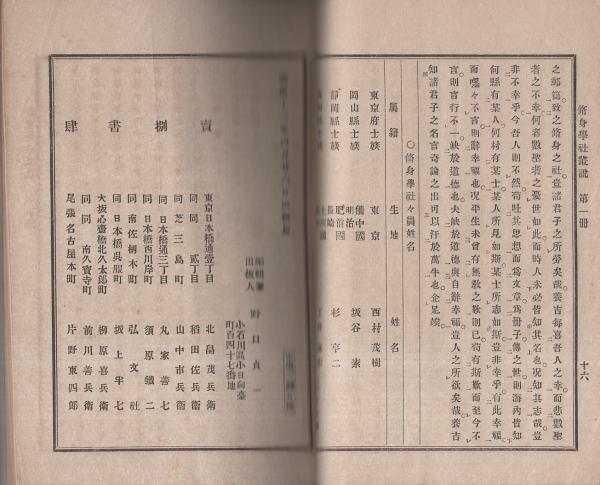 脩身學社叢說 第一冊
十六
之郵筒致之脩身之社豈諸君子之所勞矣哉蓑吉每喜吾人之幸而悲數聖
者之不幸何者數聖者之憂世如此而時人未必皆知其名也况知其志哉豈
非不幸乎今吾人則不然苟吐其思想而爲文章爲冊子傳之世則海內皆知
何縣有某人何村有某士某人所見如斯某士所志如斯豈非幸乎有此幸福
而嘿々不言則辭幸福也况平生未曾有無敎之歎則已苟有斯歎而至今不
言則言行不一缺於道德也夫缺於道德與自辭幸福豈人之所欲矣哉蓑吉
知諸君子之名言奇論之出可以汗於萬牛也企足竢
○脩身學社々員姓名
屬籍 生地 姓名
東京府士族 東京 西村茂樹
岡山縣士族 備中國 阪谷素
靜岡縣士族 肥前國 杉亨二
出板人 野口貞一
小石川區小日向臺
町百四十七番地
賣捌書肆
東京日本橋通壹丁目 北畠茂兵衛
同同貳丁目 稻田佐兵衛
同芝三島町 山中市兵衛
同日本橋通三丁目 丸家善七
同日本橋西川岸町 須原鐵二
同南佐柄木町 弘文社
同日本橋吳服町 坂上半七
大坂心齋橋北久太郎町 柳原喜兵衛
同同南久寶寺町 前川善兵衛
尾張名古屋本町 片野東四郎